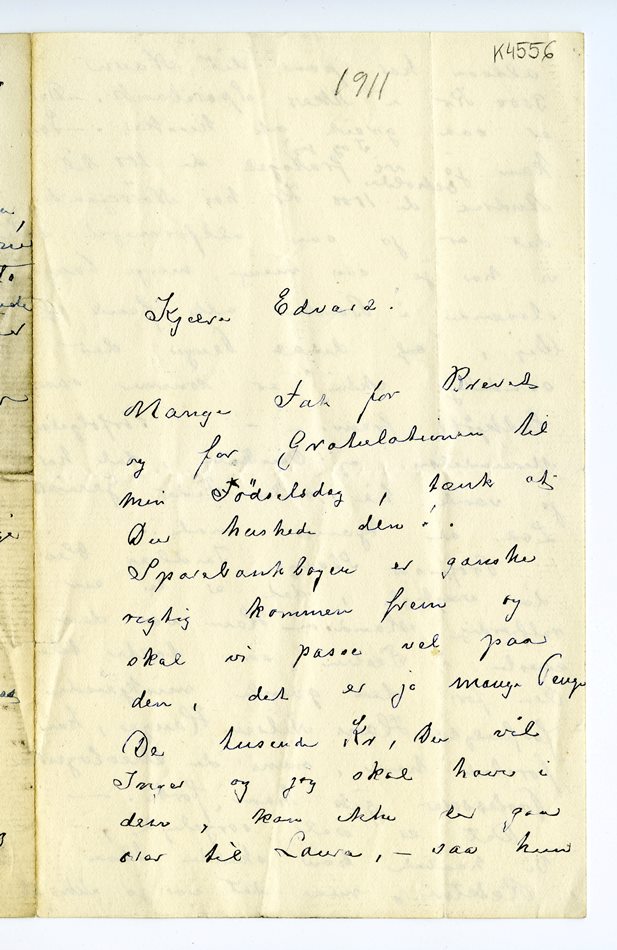 K4556
1911
Kjære Edvard.
Mange Tak for Brevet
og for Gratulationen til
min Födselsdag, tænk at
Du huskede den!.
Sparebankbogen er ganske
rigtig kommen frem og
skal vi passe vel paa
den, det er jo mange Penge
De tusende Kr, Du vil
Inger og jeg skal have i
den, kan ikke der gaa
til Laura, – saa hun